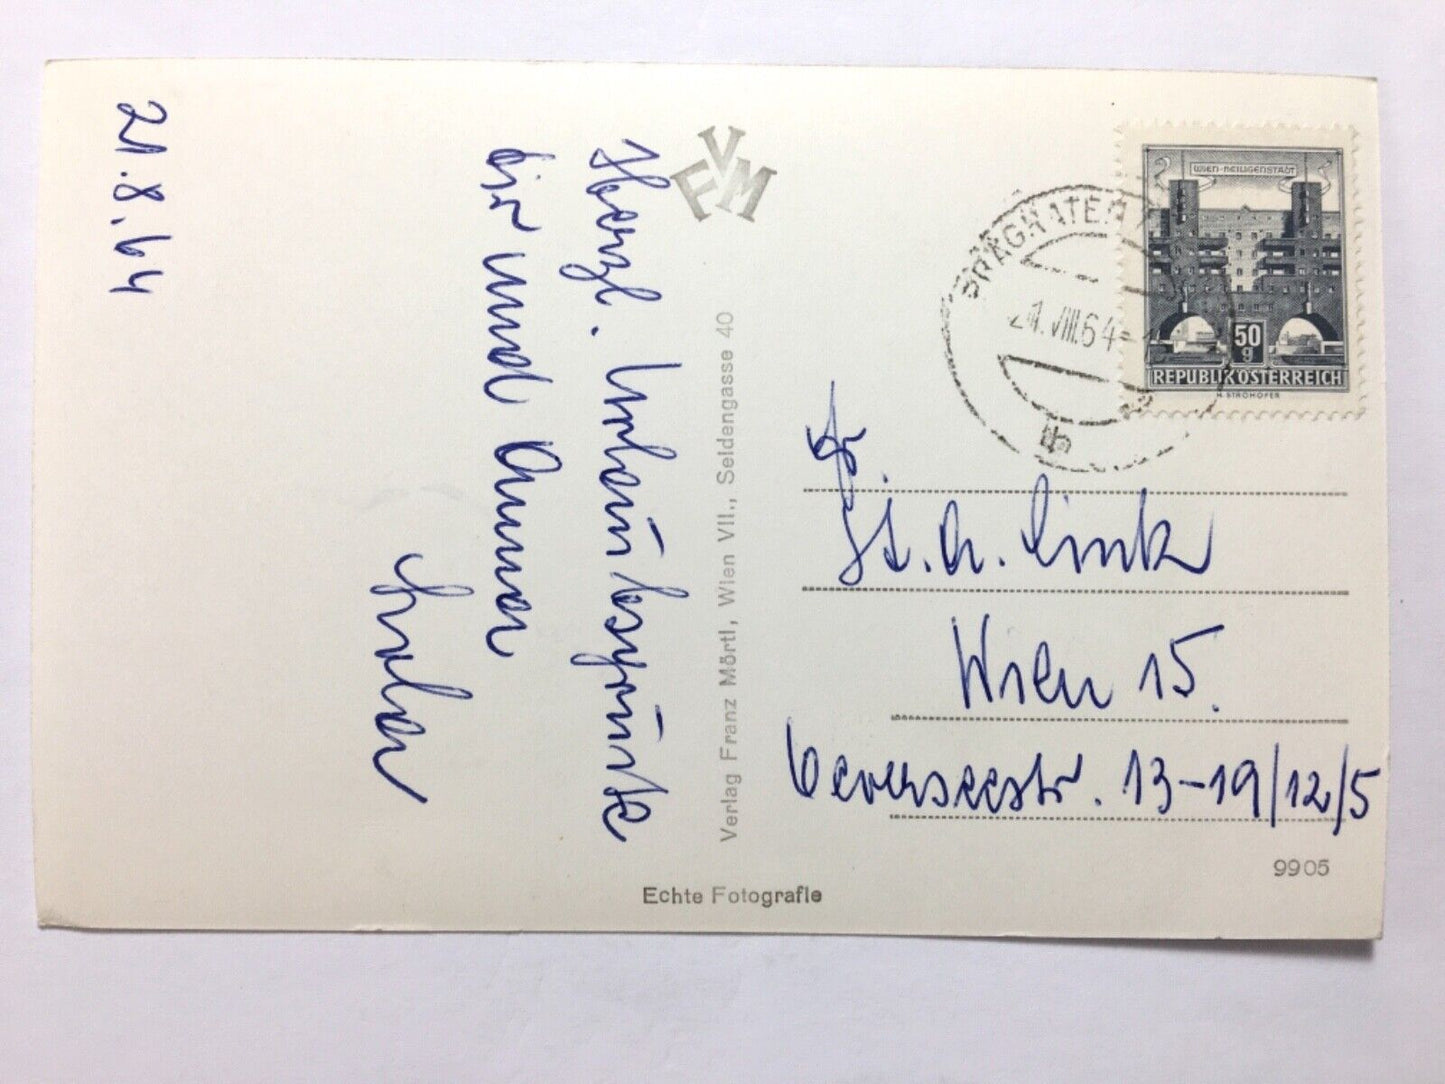 21.8.64
Herzl. Urlaubsgrüße
dir und Anna
WIEN-HEILIGENSTADT
50
g
REPUBLIK ÖSTERREICH
H. STROHOFER
21.VIII.64
b
FVM
Verlag Franz Mörtl, Wien VII., Seidengasse 40
Fr
St. A. Link
Wien 15.
Oeverseestr. 13-19/12/5
9905
Echte Fotografie